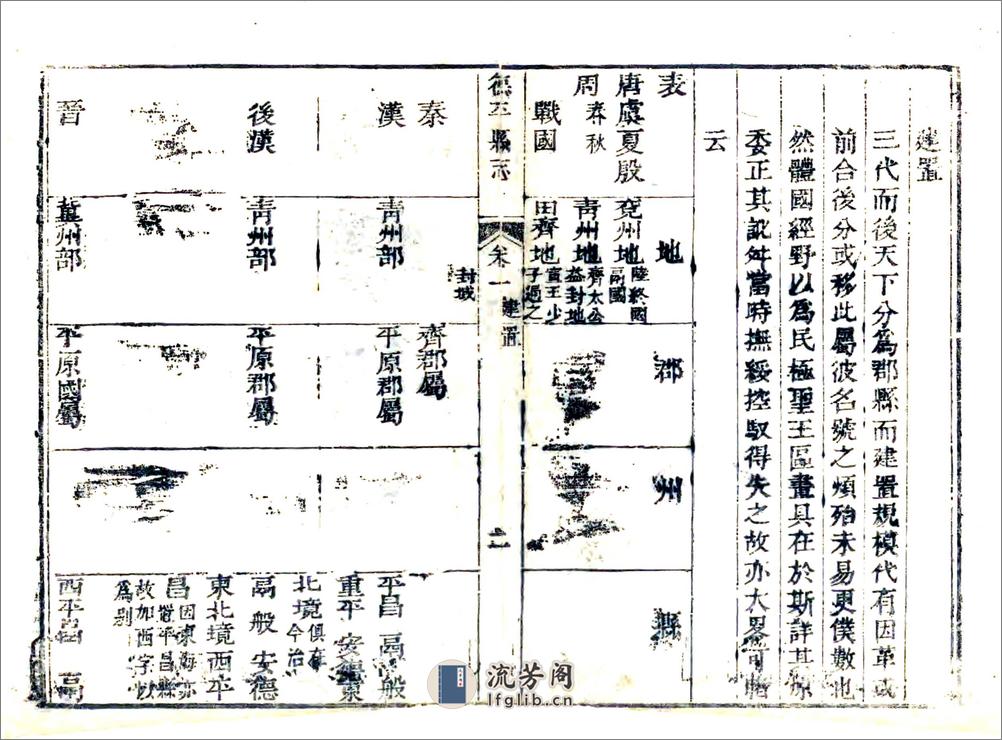 建置
三代而後天下分爲郡縣而建置規模代有因革或
前合後分或移此屬彼名號之煩殆未易更僕數也
然體國經野以爲民極聖王區畫具在於斯詳其源
委正其訛舛當時撫綏控馭得失之故亦大畧可睹
云
表 地 郡 州 縣
唐虞夏殷 兗州地 陸終國 鬲國
周 春秋 青州地 齊太公益封地
戰國 田齊地 寅王少子過之
封域
德平縣志 卷一 建置 二
秦 齊郡屬
漢 青州部 平原郡屬 平昌 鬲 般
重平 安德東
北境俱在今治
後漢 青州部 平原郡屬 鬲 般 安德
東北境西平
昌因東海亦置平昌縣
故加西字以爲别
晉 冀州部 平原國屬 西平昌 鬲
流芳阁
lfglib.cn